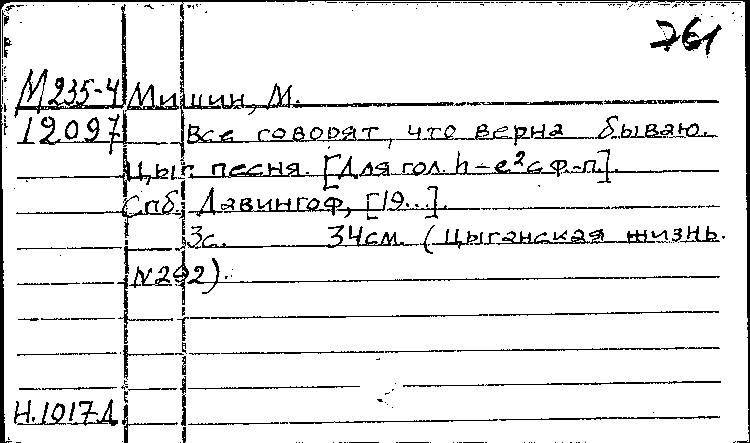 761
М235-4 Мишин, М.
12097 Все говорят, что верна бываю.
Цыг. песня. [Для гол. h-e² с ф.-п.].
Спб. Давингоф, [19...].
3с. 34см. (Цыганская жизнь.
N292).
Н.1017Д